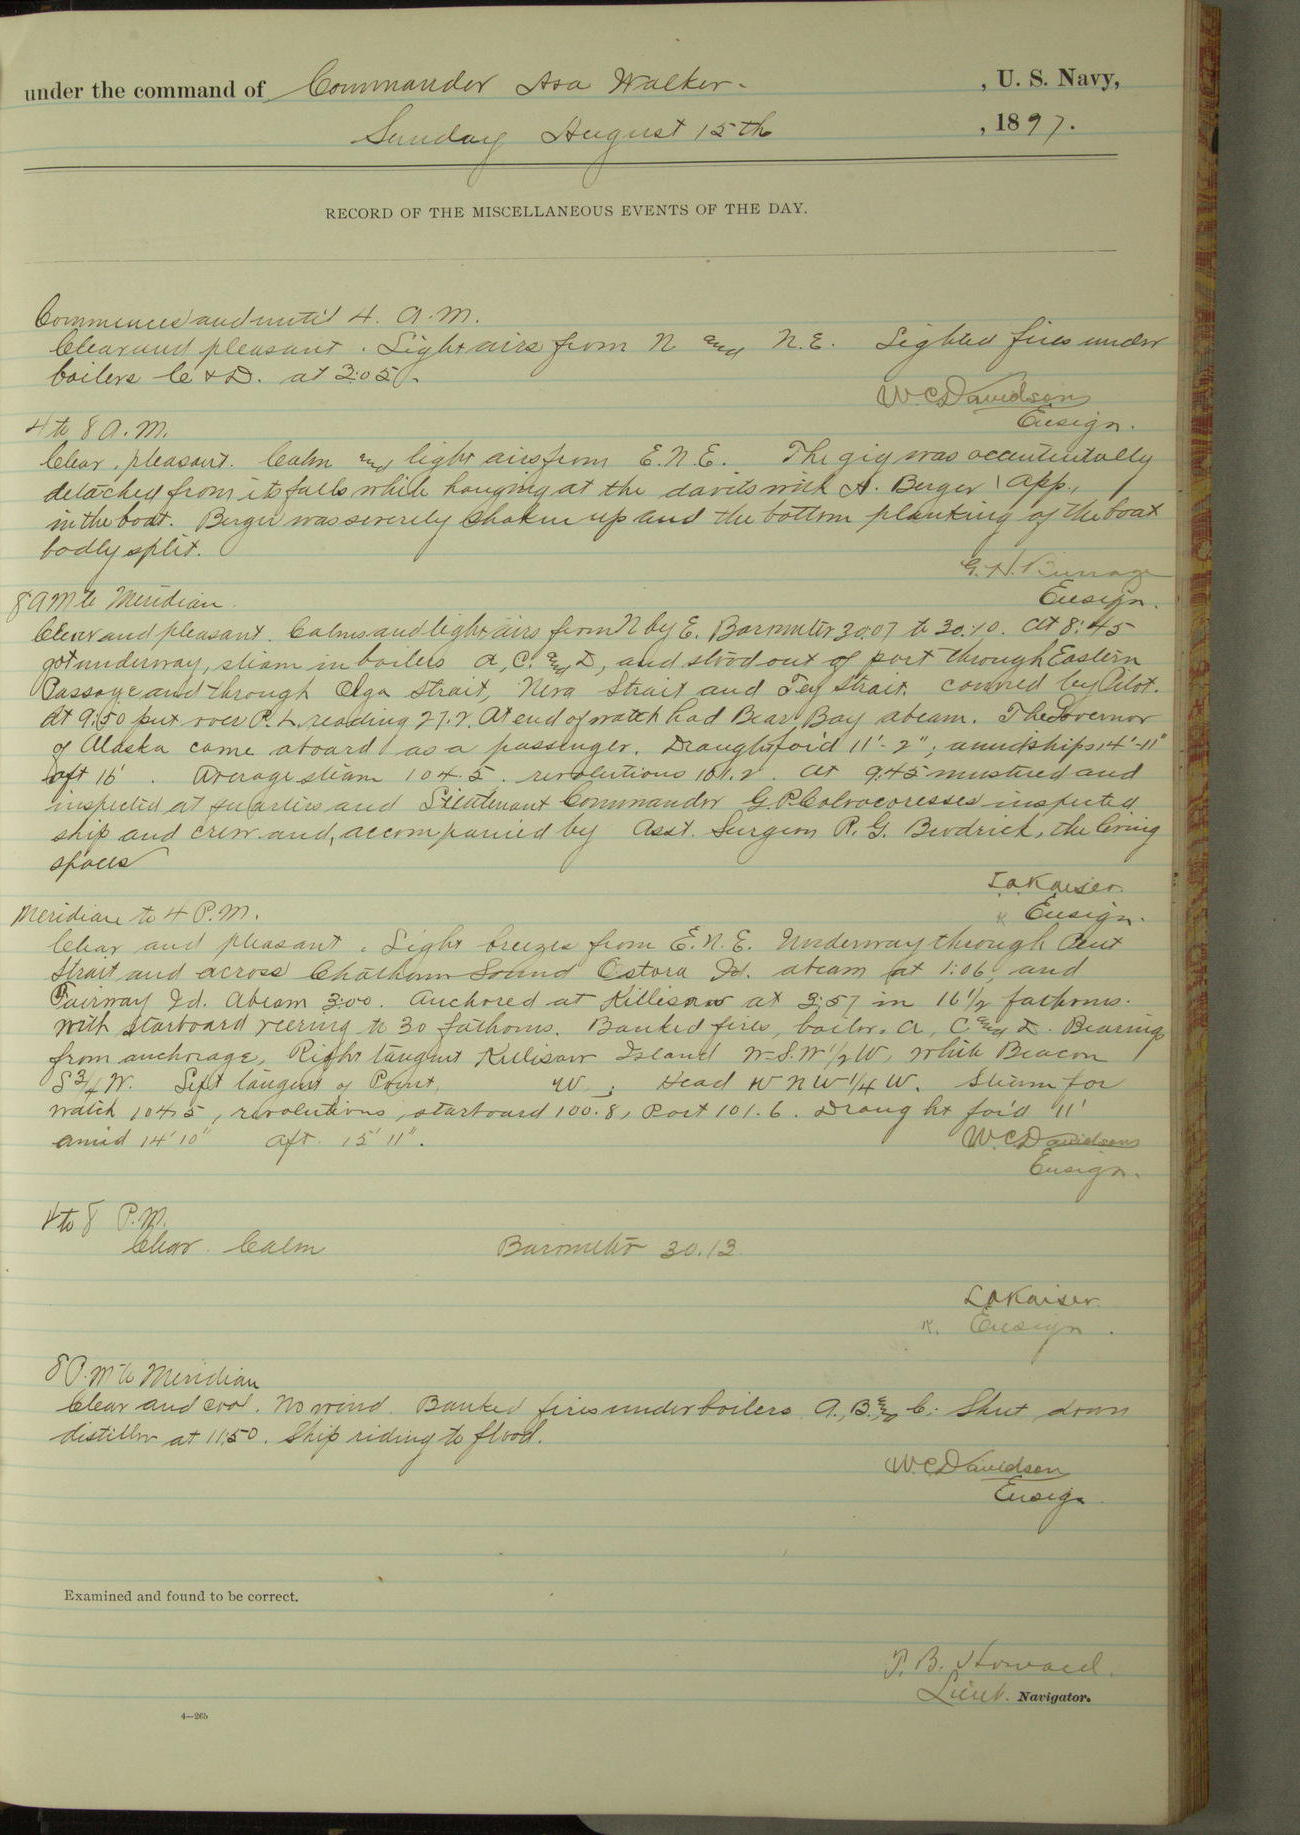 under the command of Commander Asa Walker. , U. S. Navy,
Sunday August 15th , 1897.
RECORD OF THE MISCELLANEOUS EVENTS OF THE DAY.
Commences and until 4. A.M.
Clear and pleasant. Light airs from N and N.E. Lighted fires under
boilers C & D. at 3:05.
W. C. Davidson
Ensign.
4 to 8 A.M.
Clear, pleasant. Calm and light airs from E.N.E. The gig was accidentally
detached from its falls while hanging at the davits with A. Berger, app,
in the boat. Berger was severely shaken up and the bottom planking of the boat
badly split.
G. H. Burrage
Ensign.
8 AM to Meridian.
Clear and pleasant. Calms and light airs from N by E. Barometer 30.07 to 30.10. At 8:45
got underway, steam in boilers A, C. and D, and stood out of port through Eastern
Passage and through Olga Strait, Neva Strait and Strait. conned by Pilot.
At 9:50 put over P. L. reading 27.2. At end of watch had Bear Bay abeam. The Governor
of Alaska came aboard as a passenger. Draught for'd 11'-2"; amidships 14'-11"
aft 16'. Average steam 104.5. revolutions 101.2. At 9:45 mustered and
inspected at quarters and Lieutenant Commander G. P. Colvocoresses inspected
ship and crew and, accompanied by Asst. Surgeon R. G. Brodrick, the living
spaces
L A Kaiser.
Ensign.
Meridian to 4 P.M.
Clear and pleasant. Light breezes from E.N.E. Underway through
Strait and across Chatham Sound Id. abeam at 1:06, and
Fairway Id. abeam 3:00. Anchored at Killisnoo at 3:57 in 16 1/2 fathoms.
with starboard veering to 30 fathoms. Banked fires, boilers A, C and D. Bearings
from anchorage, Right tangent Killisnoo Island W-S.W 1/2 W, White Beacon
S 3/4 W. Left tangent of Point, W ; Head W N W 1/4 W. Steam for
watch 104.5, revolutions, starboard 100.8, Port 101.6. Draught for'd 11'
amid 14' 10" aft. 15' 11".
W. C. Davidson
Ensign.
4 to 8 P.M.
Clear. Calm Barometer 30.13
L A Kaiser.
Ensign.
8 P.M to Meridian
Clear and cool. No wind. Banked fires under boilers A., B. and C. Shut down
distiller at 11:50. Ship riding to flood.
W. C. Davidson
Ensign
Examined and found to be correct.
T. B. Howard.
Lieut. Navigator.
4—265